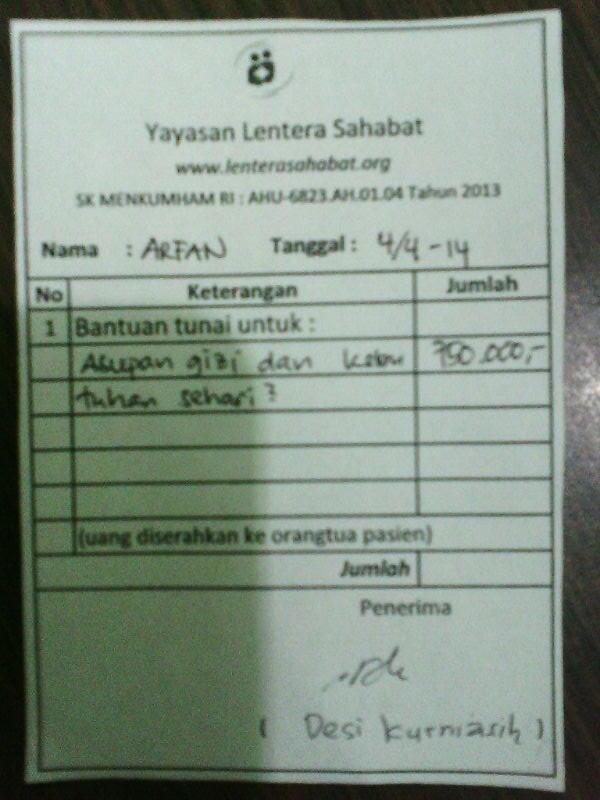 Yayasan Lentera Sahabat
www.lenterasahabat.org
SK MENKUMHAM RI : AHU-6823.AH.01.04 Tahun 2013
Nama : ARFAN Tanggal : 4/4-14
No Keterangan Jumlah
1 Bantuan tunai untuk :
Asupan gizi dan kebu 750.000,-
tuhan sehari2
(uang diserahkan ke orangtua pasien)
Jumlah
Penerima
( Desi Kurniasih )